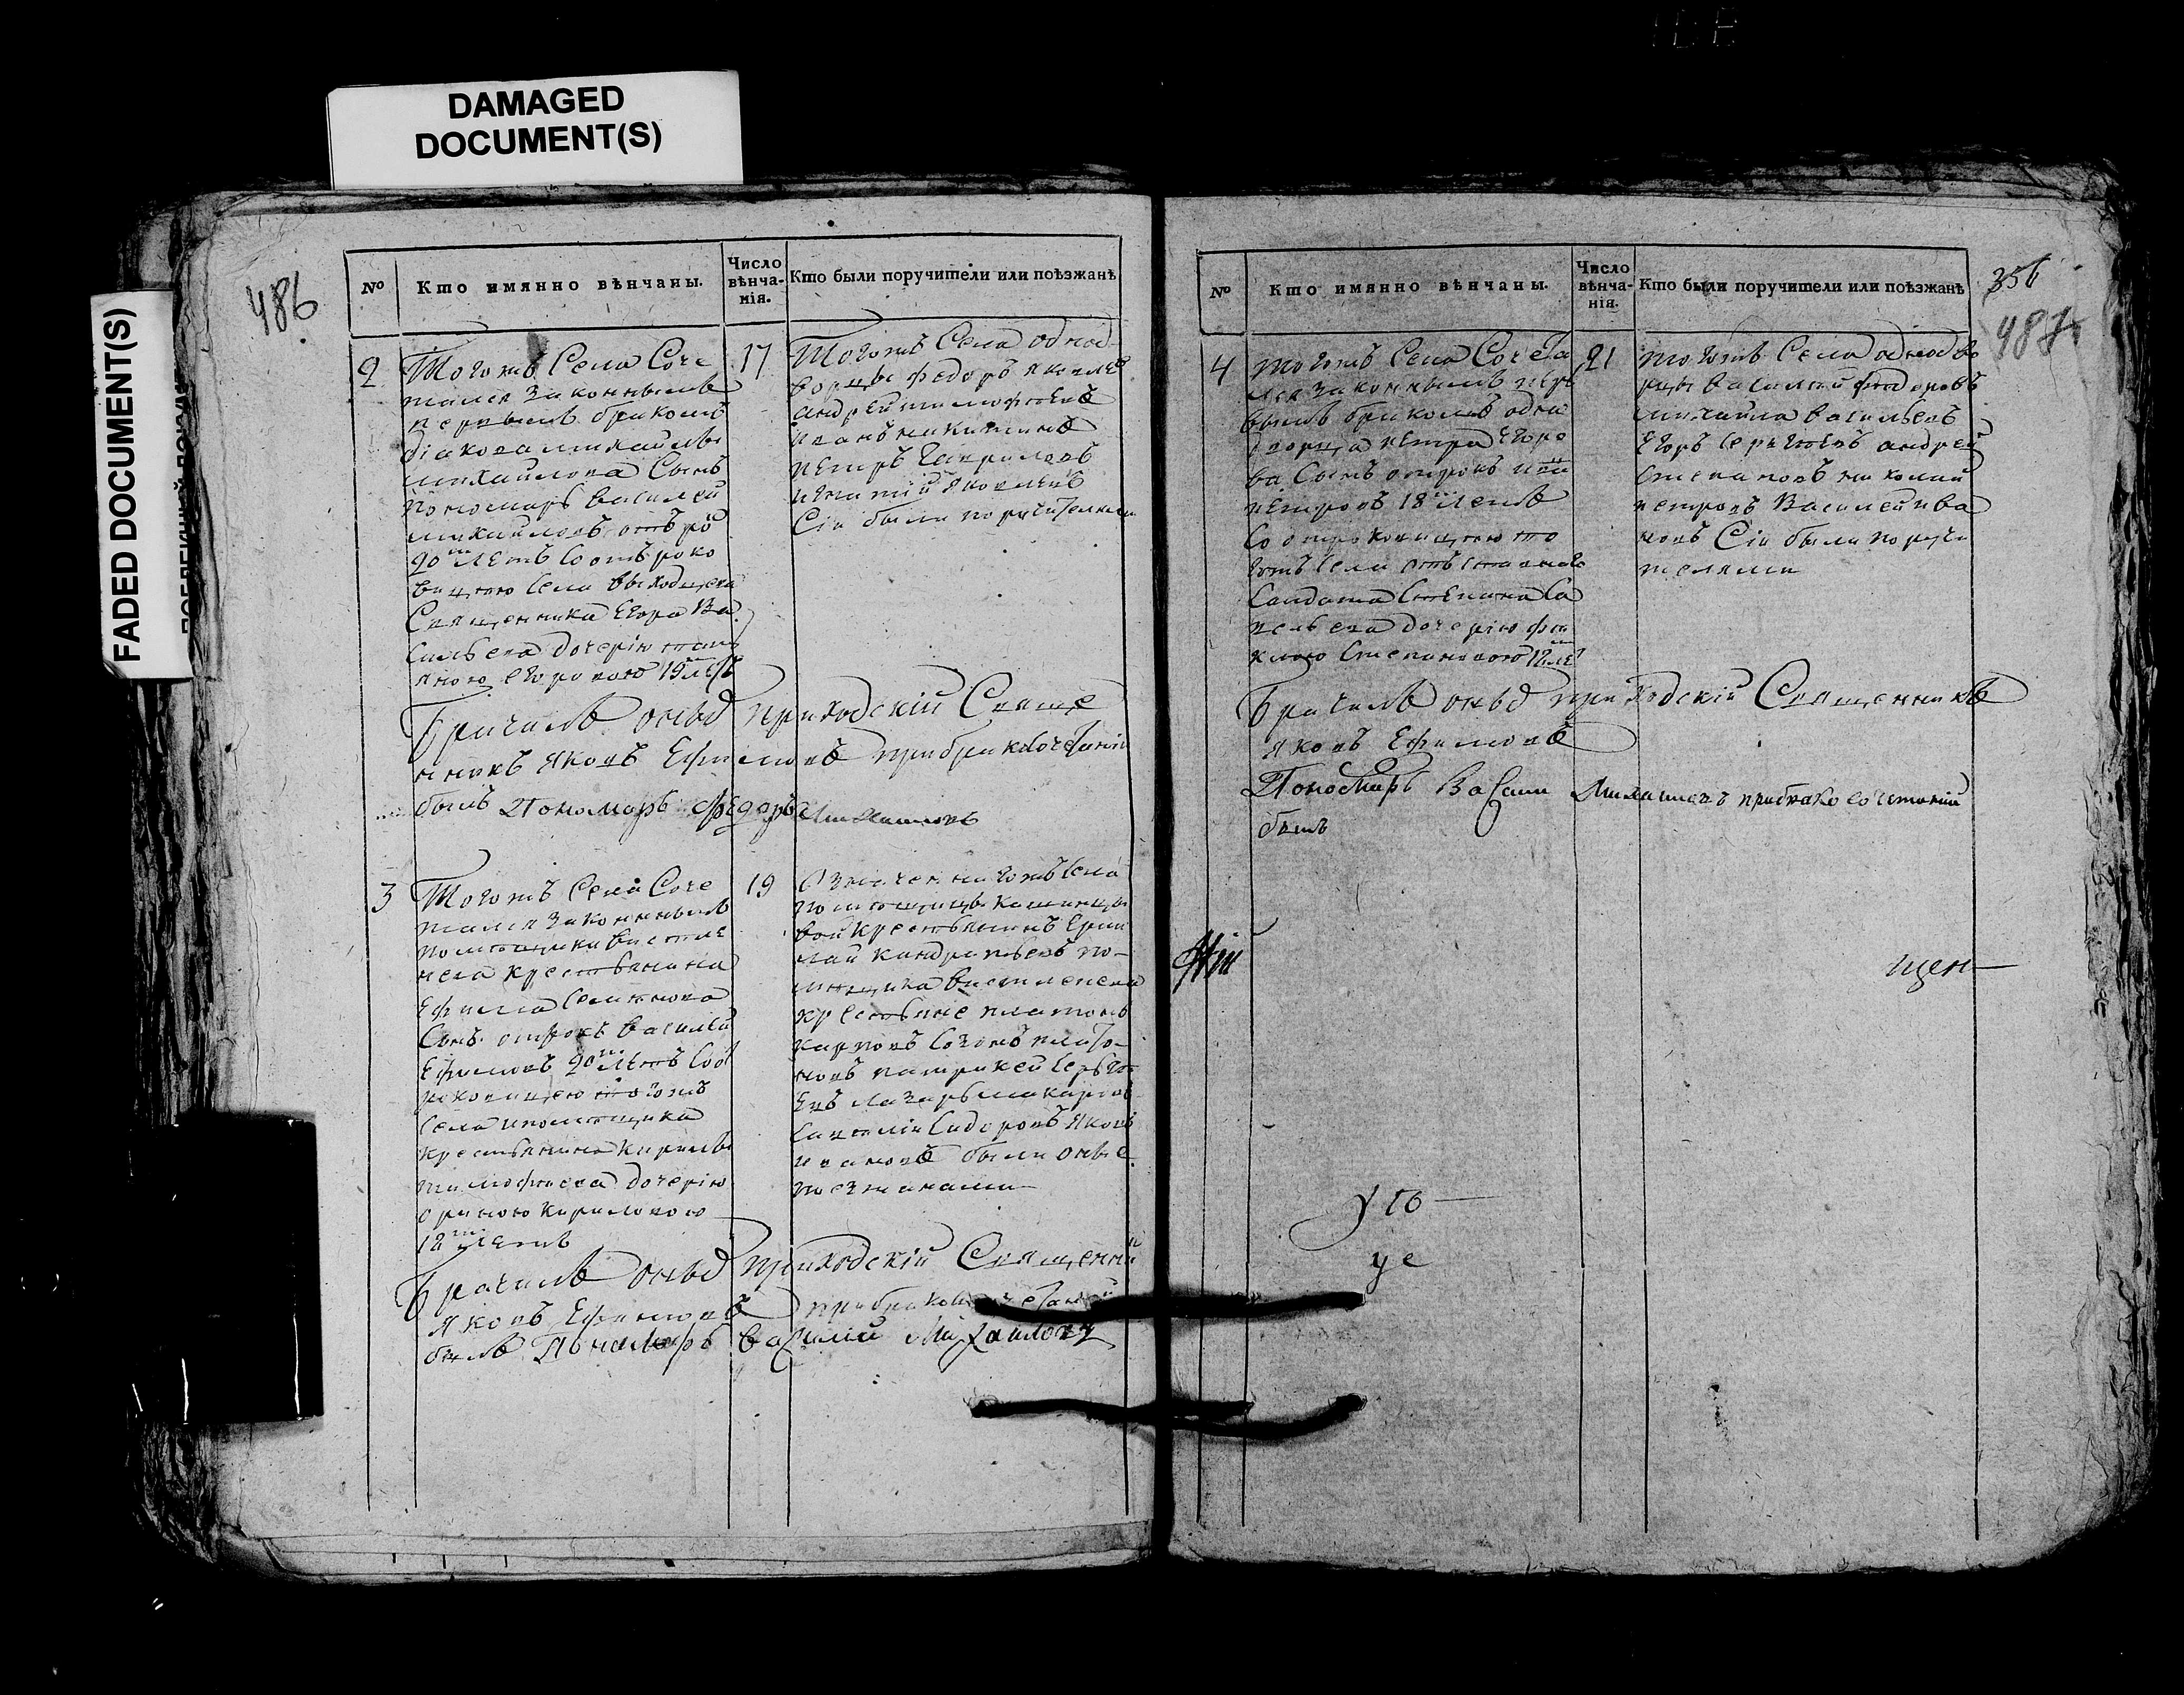 DAMAGED
DOCUMENT(S)
FADED DOCUMENT(S)
486
№
Кто имянно вѣнчаны.
Число
вѣнча-
нія.
Кто были поручители или поѣзжанѣ
2
Тогожъ Села Соче
тался законнымъ
первымъ бракомъ
діакона михайлы
михайлова Сынъ
пономарь василей
михайловъ
20 лѣтъ Со отроко
вицею Села
Священника Егора Ва
сильева дочерію
Егоровою 19 лѣтъ
17
Тогожъ Села однод
ворцы федоръ яковлев
андрей тимофеевъ
иванъ никитинъ
петръ Гавриловъ
игнатий яковлевъ
Сіи были поручителями
Брачилъ оныхъ приходскій Свяще
нникъ яковъ Ефимовъ при бракосочетаніи
былъ Пономарь федоръ Михаиловъ
3
Тогожъ Села Соче
тался законнымъ
помещика
крестьянина
Ефима Семионова
Сынъ отрокъ василей
Ефимовъ 20 лѣтъ Со от
роковицею тогожъ
Села помещика
крестьянина Кирилы
тимофеева дочерію
ориною кириловою
18 лѣтъ
19
Означеннагожъ Села
помещицы
вой крестьянинъ Ерми
лай кандратьевъ по-
мещика
крестьяне платонъ
карповъ Созонъ плато-
новъ патрикей Сергѣ
евъ лазарь макаров
Сидоровъ яковъ
ивановъ были оные
поезжанами
Брачилъ оныхъ приходскій Священни
яковъ Ефимовъ при бракосочетаніи
былъ Пономарь василий Михаиловъ
356
487
№
Кто имянно вѣнчаны.
Число
вѣнча-
нія.
Кто были поручители или поѣзжанѣ
4
тогожъ Села Сочета
лся законнымъ пер
вымъ бракомъ одно
дворца петра Егоро
ва Сынъ отрокъ
петровъ 18 лѣтъ
Со отроковицею то
гожъ Села отставнаго
Салдата Степана Са
вельева дочерію фе
клою Степановою 18 лѣ
21
тогожъ Села однодво
рцы василей федоровъ
михайла васильевъ
Егоръ Сергѣевъ андрей
Степановъ николай
петровъ Василей ива
новъ Сіи были поручи
телями
Брачилъ оныхъ приходскій Священникъ
яковъ Ефимовъ
Пономарь Васили Михаиловъ при бракосочетаніи
былъ
щен
уго
це